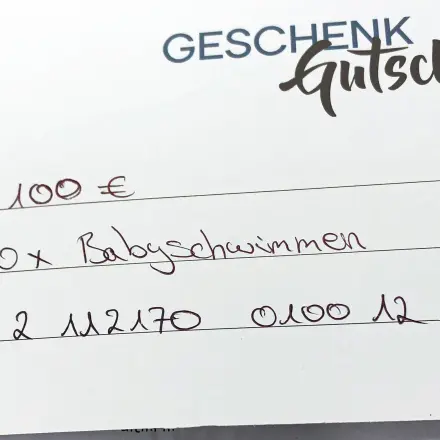 GESCHENK
Gutsch
100 €
0x Babyschwimmen
2 112170 0100 12